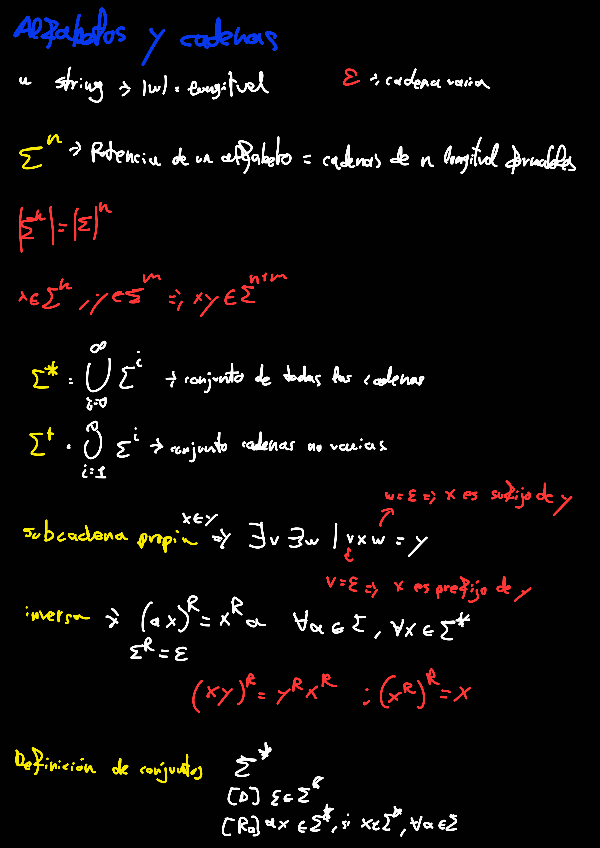 Alfabetos y cadenas
w string → |w| = longitud   ε → cadena vacía
Σ^n → Potencia de un alfabeto = cadenas de n longitud formables
|Σ^n| = |Σ|^n
x ∈ Σ^n, y ∈ Σ^m ⇒ xy ∈ Σ^{n+m}
Σ* = ⋃_{i=0}^{∞} Σ^i → conjunto de todas las cadenas
Σ^+ = ⋃_{i=1}^{∞} Σ^i → conjunto cadenas no vacías
w = ε ⇒ x es sufijo de y
subcadena propia x∈y ⇒ ∃v ∃w | vxw = y
v = ε ⇒ x es prefijo de y
inversa ⇒ (ax)^R = x^R a   ∀a ∈ Σ, ∀x ∈ Σ*
Σ^R = ε
(xy)^R = y^R x^R ; (x^R)^R = x
Definición de conjuntos   Σ*
ε ∈ Σ*
ax ∈ Σ*, x ∈ Σ*, ∀a ∈ Σ